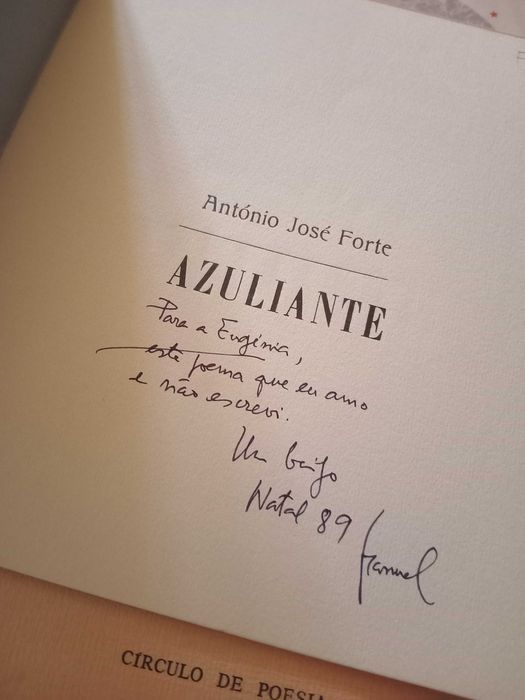 António José Forte
AZULIANTE
Para a Eugénia,
este poema que eu amo
e não escrevi.
Um beijo
Natal 89
Manuel
CÍRCULO DE POESIA